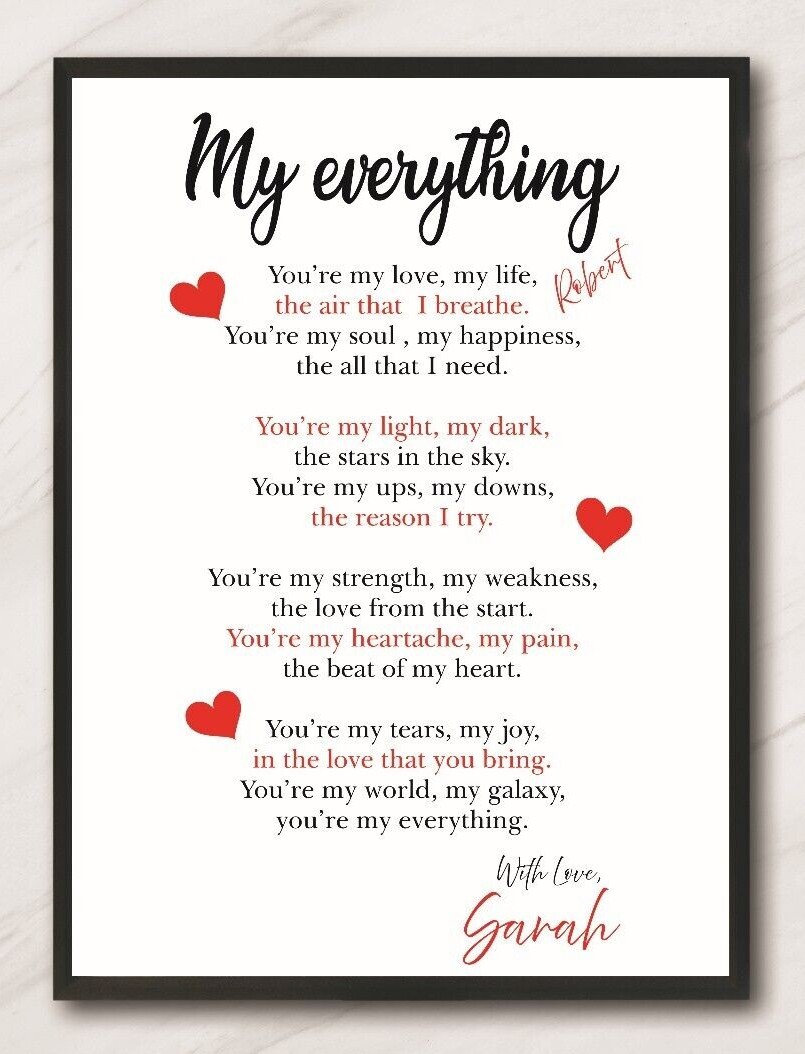 My everything
You're my love, my life,
Robert
the air that I breathe.
You're my soul , my happiness,
the all that I need.
You're my light, my dark,
the stars in the sky.
You're my ups, my downs,
the reason I try.
You're my strength, my weakness,
the love from the start.
You're my heartache, my pain,
the beat of my heart.
You're my tears, my joy,
in the love that you bring.
You're my world, my galaxy,
you're my everything.
With Love,
Sarah